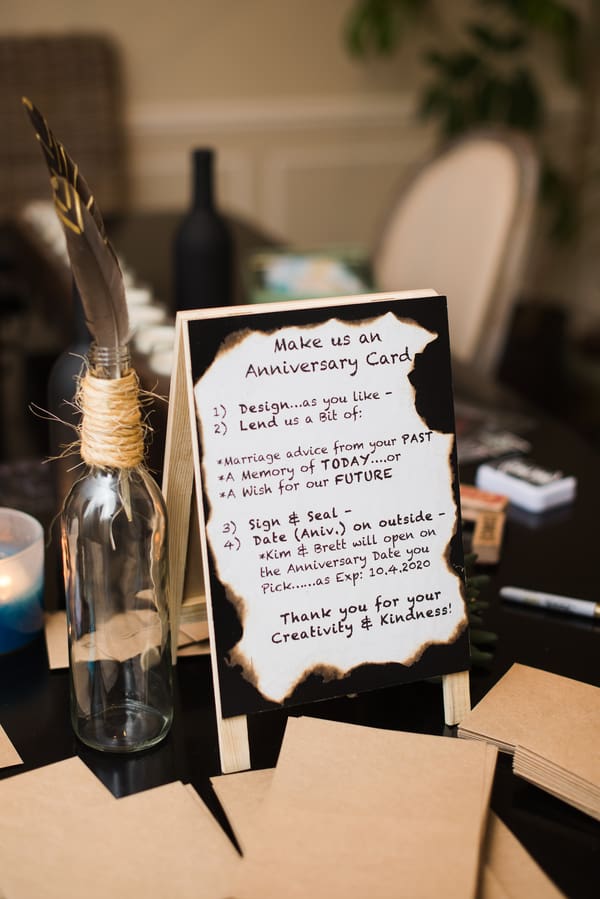 Make us an
Anniversary Card
1) Design...as you like -
2) Lend us a Bit of:
*Marriage advice from your PAST
*A Memory of TODAY....or
*A Wish for our FUTURE
3) Sign & Seal -
4) Date (Aniv.) on outside -
*Kim & Brett will open on
the Anniversary Date you
Pick......as Exp: 10.4.2020
Thank you for your
Creativity & Kindness!